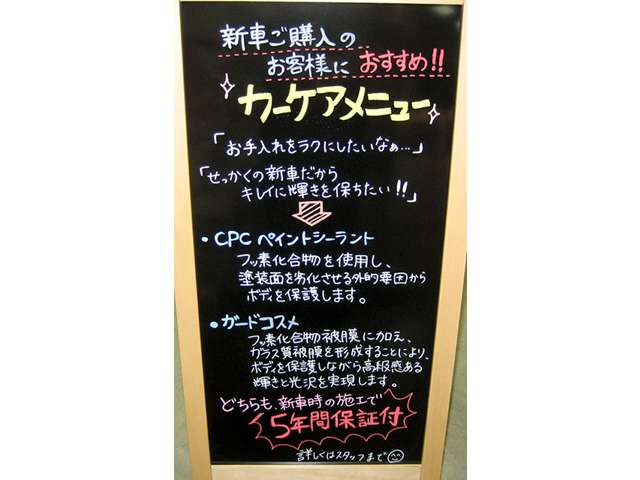 新車ご購入の
お客様に おすすめ!!
カーケアメニュー
「お手入れをラクにしたいなぁ…」
「せっかくの新車だから
キレイに輝きを保ちたい!!」
・CPC ペイントシーラント
フッ素化合物を使用し、
塗装面を劣化させる外的要因から
ボディを保護します。
・ガードコスメ
フッ素化合物被膜に加え、
ガラス質被膜を形成することにより、
ボディを保護しながら高級感ある
輝きと光沢を実現します。
どちらも、新車時の施工で
5年間保証付
詳しくはスタッフまで